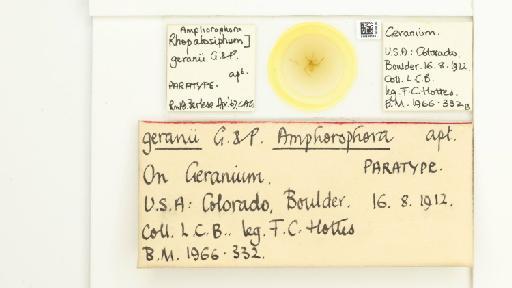 Amphorophora
Rhopalosiphum]
geranii G.&P.
apt.
PARATYPE.
Geranium.
U.S.A: Colorado
Boulder. 16.8.1912
Coll. L.C.B.
leg. F.C. Hottes.
B.M. 1966-332
geranii G.&P. Amphorophora apt.
On Geranium. PARATYPE.
U.S.A: Colorado, Boulder. 16.8.1912.
Coll. L.C.B.. leg. F.C. Hottes
B.M. 1966-332.